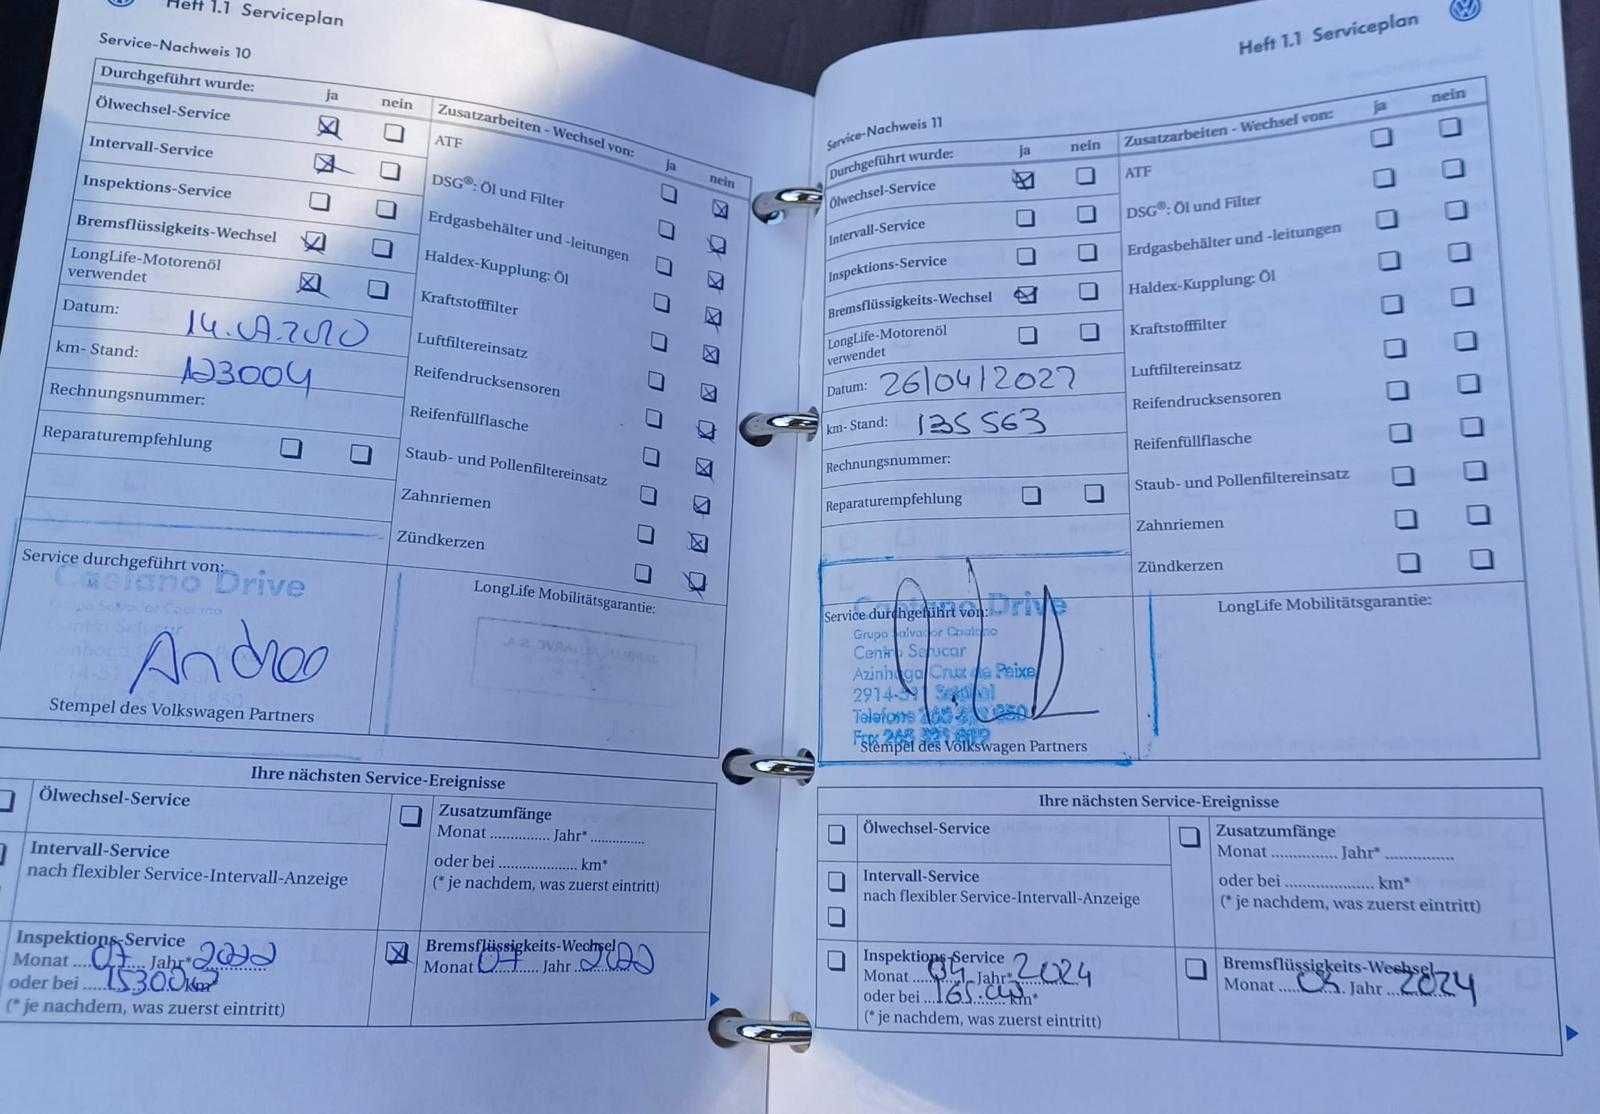 Heft 1.1 Serviceplan
Service-Nachweis 10
Durchgeführt wurde:
ja
nein
Ölwechsel-Service
Intervall-Service
Inspektions-Service
Bremsflüssigkeits-Wechsel
LongLife-Motorenöl
verwendet
Datum:
km- Stand: 123004
Rechnungsnummer:
Reparaturempfehlung
Zusatzarbeiten - Wechsel von:
ja
nein
ATF
DSG®: Öl und Filter
Erdgasbehälter und -leitungen
Haldex-Kupplung: Öl
Kraftstofffilter
Luftfiltereinsatz
Reifendrucksensoren
Reifenfüllflasche
Staub- und Pollenfiltereinsatz
Zahnriemen
Zündkerzen
Service durchgeführt von:
Caetano Drive
Grupo Salvador Caetano
Stempel des Volkswagen Partners
LongLife Mobilitätsgarantie:
Ihre nächsten Service-Ereignisse
Ölwechsel-Service
Intervall-Service
nach flexibler Service-Intervall-Anzeige
Inspektions-Service
Monat ....07.... Jahr* 2022
oder bei ..... km*
(* je nachdem, was zuerst eintritt)
Zusatzumfänge
Monat .............. Jahr* .............
oder bei .................. km*
(* je nachdem, was zuerst eintritt)
Bremsflüssigkeits-Wechsel
Monat ..07.... Jahr ..2022
Heft 1.1 Serviceplan
Service-Nachweis 11
Durchgeführt wurde:
ja
nein
Ölwechsel-Service
Intervall-Service
Inspektions-Service
Bremsflüssigkeits-Wechsel
LongLife-Motorenöl
verwendet
Datum: 26/04/2022
km- Stand: 135 563
Rechnungsnummer:
Reparaturempfehlung
Zusatzarbeiten - Wechsel von:
ja
nein
ATF
DSG®: Öl und Filter
Erdgasbehälter und -leitungen
Haldex-Kupplung: Öl
Kraftstofffilter
Luftfiltereinsatz
Reifendrucksensoren
Reifenfüllflasche
Staub- und Pollenfiltereinsatz
Zahnriemen
Zündkerzen
Caetano Drive
Service durchgeführt von:
Grupo Salvador Caetano
Centro Serucar
Azinhaga Cruz de Peixe
Setúbal
Telefone
Fax
Stempel des Volkswagen Partners
LongLife Mobilitätsgarantie:
Ihre nächsten Service-Ereignisse
Ölwechsel-Service
Intervall-Service
nach flexibler Service-Intervall-Anzeige
Inspektions-Service
Monat ....04.. Jahr* 2024
oder bei ..165.000 km*
(* je nachdem, was zuerst eintritt)
Zusatzumfänge
Monat ............... Jahr* ...............
oder bei ..................... km*
(* je nachdem, was zuerst eintritt)
Bremsflüssigkeits-Wechsel
Monat .... Jahr ..2024